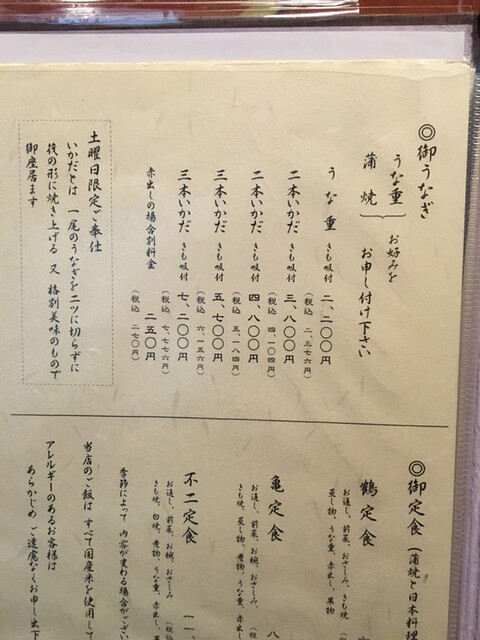 ◎御うなぎ
うな重
蒲焼
お好みを
お申し付け下さい
うな重 きも吸付 二、二〇〇円
(税込 二、三七六円)
二本いかだ きも吸付 三、八〇〇円
(税込 四、一〇四円)
二本いかだ きも吸付 四、八〇〇円
(税込 五、一八四円)
三本いかだ きも吸付 五、七〇〇円
(税込 六、一五六円)
三本いかだ きも吸付 七、二〇〇円
(税込 七、七七六円)
赤出しの場合別料金 二五〇円
(税込 二七〇円)
土曜日限定ご奉仕
いかだとは 一尾のうなぎを二ツに切らずに
筏の形に焼き上げる 又 格別美味のもので
御座居ます
◎御定食(蒲焼と日本料理
鶴定食
お通し、前菜、おさしみ、きも焼
蒸し物、うな重、赤出し、果物
亀定食
お通し、前菜、お椀、おさしみ、
きも焼、蒸し物、煮物、うな重、赤出し、
八
不二定食
お通し、前菜、お椀、おさしみ、
きも焼、白焼、煮物、うな重、赤出し、果
(税込
一一、
季節によって 内容が変わる場合がござい
当店のご飯は すべて国産米を使用して
アレルギーのあるお客様は
あらかじめ ご遠慮なくお申し出下